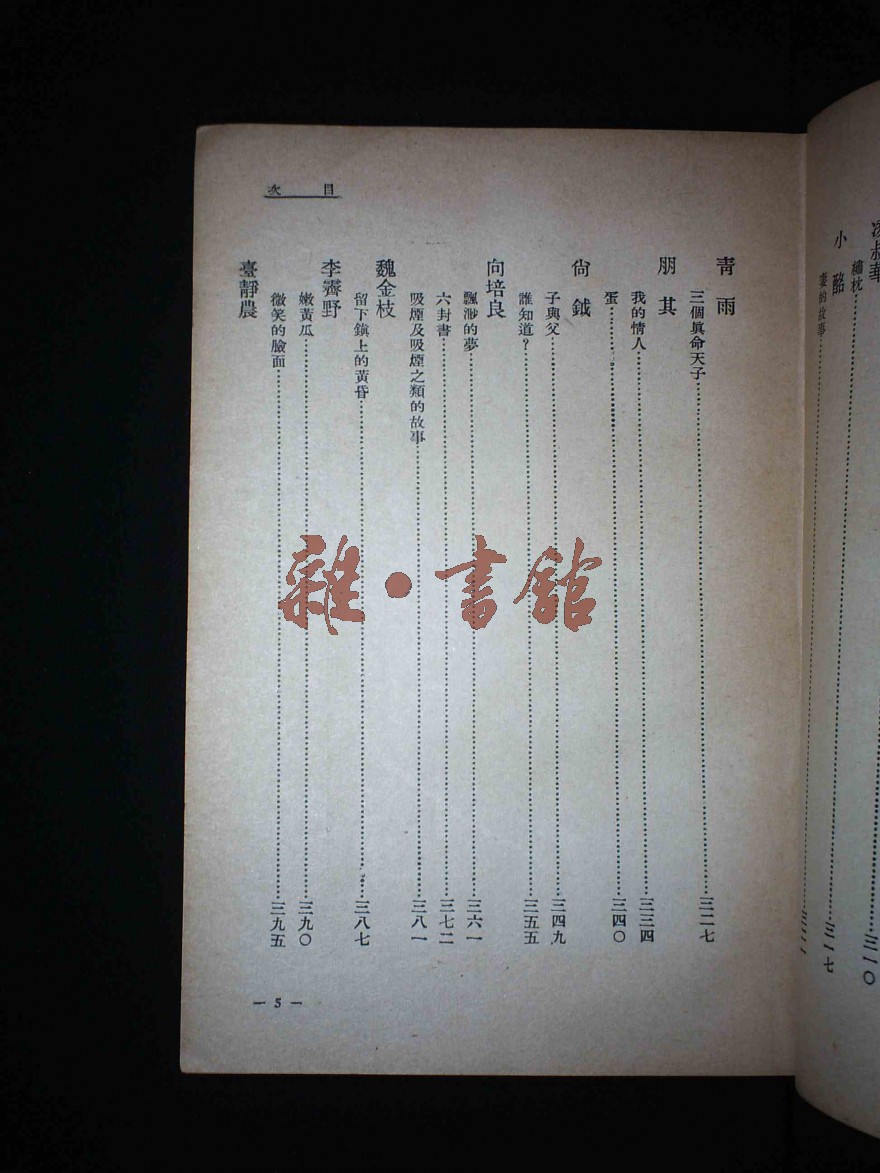 小酩
繡枕……三一〇
妻的故事……三一七
目次
青雨
三個眞命天子……三二七
朋其
我的情人……三三四
蛋……三四〇
尙鉞
子與父……三四九
誰知道？……三五五
向培良
飄渺的夢……三六一
六封書……三七二
吸煙及吸煙之類的故事……三八一
魏金枝
留下鎭上的黃昏……三八七
李霽野
嫩黃瓜……三九〇
微笑的臉面……三九五
臺靜農
— 5 —
雜·書館